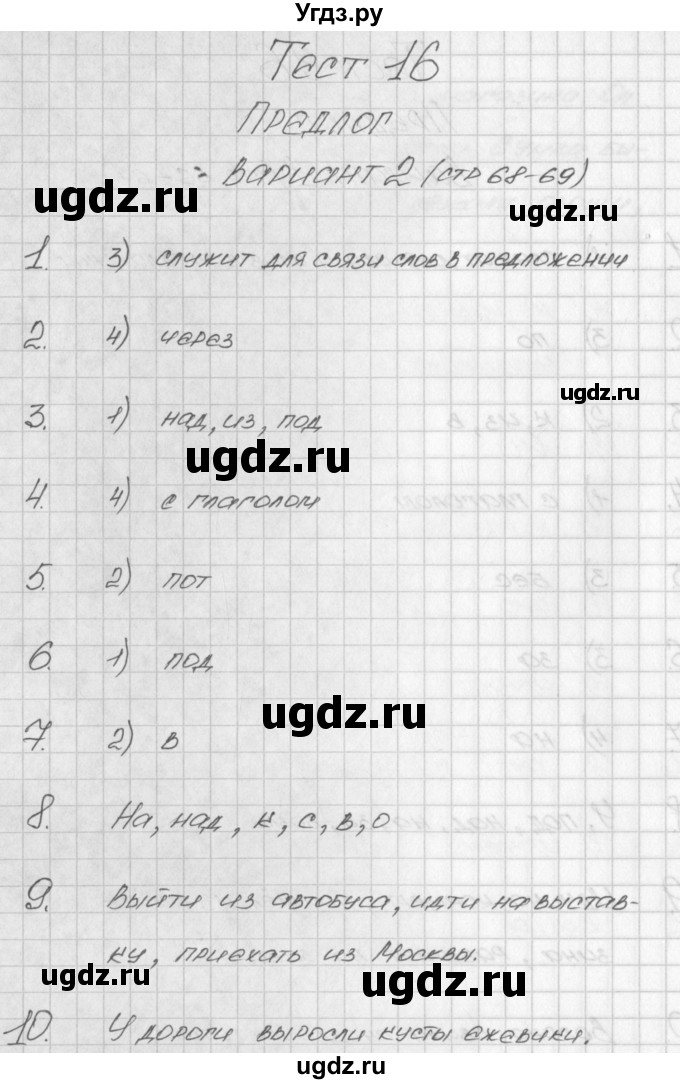 Угдз.ру
Тест 16
Предлог
Вариант 2 (стр 68-69)
ugdz.ru
ugdz.ru
1. 3) служит для связи слов в предложении
2. 4) через
ugdz.ru
3. 1) над, из, под
ugdz.ru
4. 4) с глаголом
5. 2) пот
6. 1) под
ugdz.ru
7. 2) в
8. На, над, к, с, в, о
9. Выйти из автобуса, идти на выстав-
ку, приехать из Москвы.
ugdz.ru
ugdz.ru
10. У дороги выросли кусты ежевики.
ugdz.ru